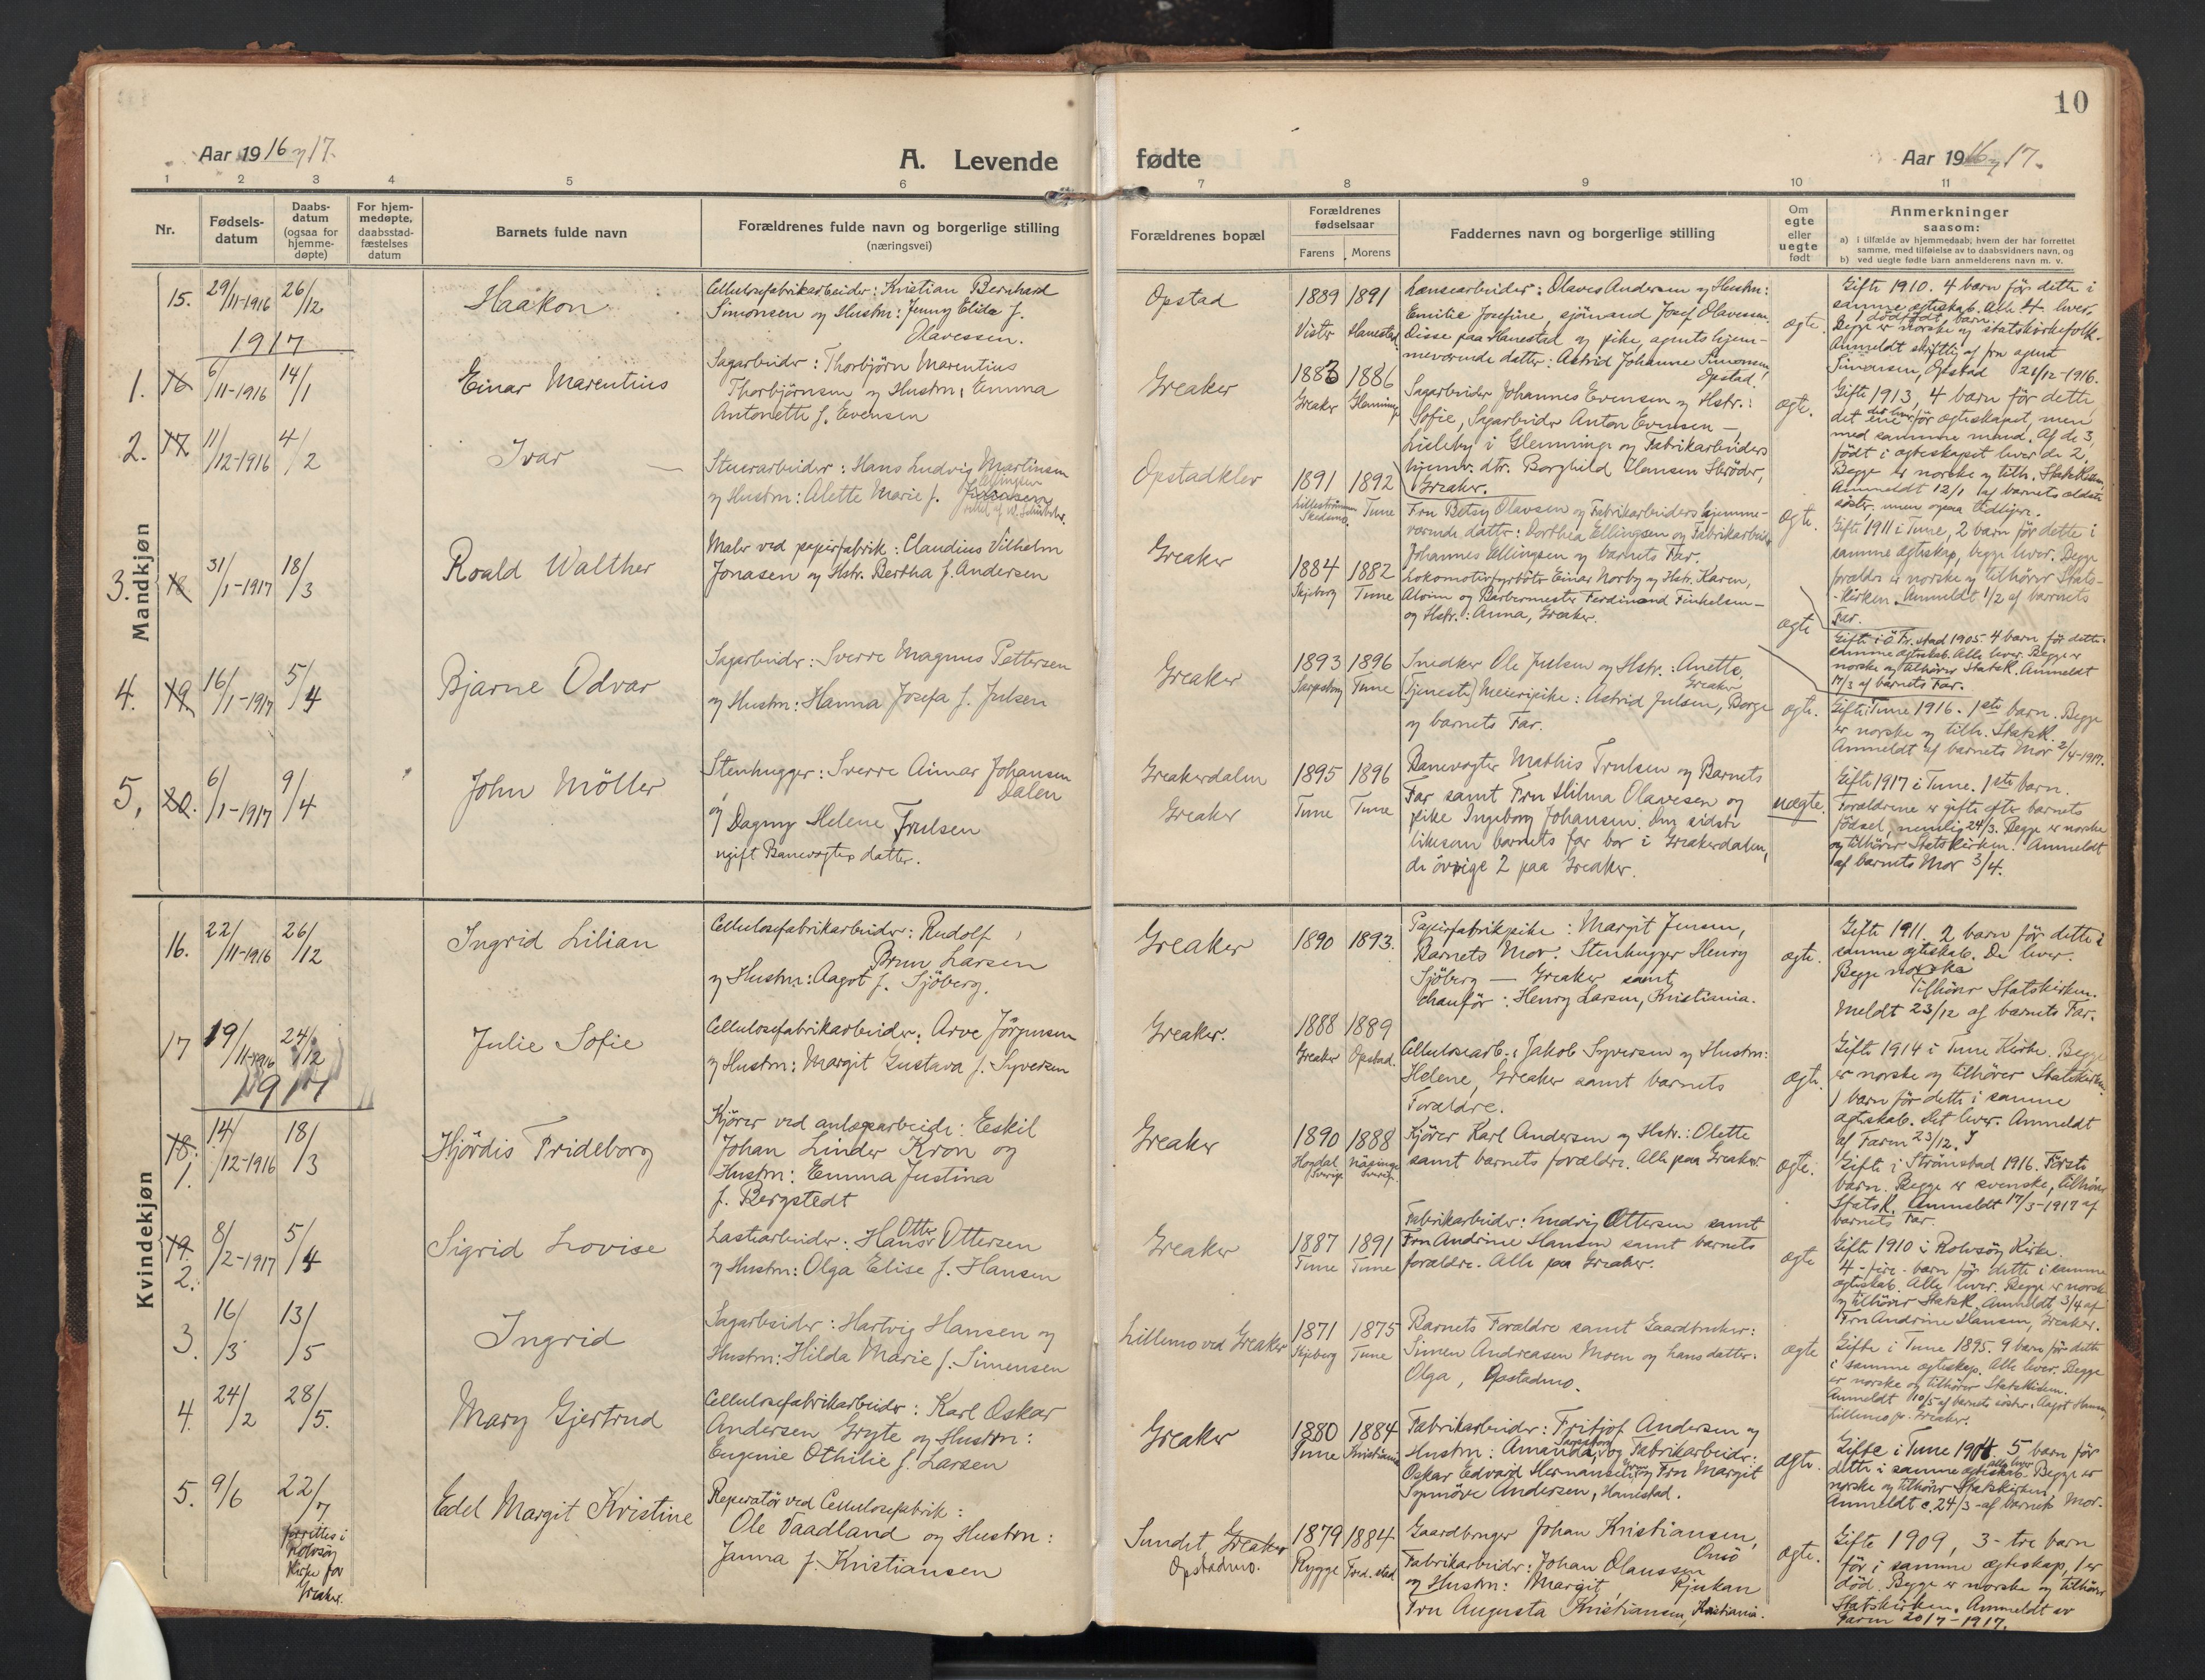 10
Aar 1916 og 17.
A. Levende fødte
Aar 1916 og 17.
1 2 3 4 5 6 7 8 9 10 11
Nr.
Fødsels-
datum
Daabs-
datum
(ogsaa for
hjemme-
døpte)
For hjem-
medøpte,
daabsstad-
fæstelses
datum
Barnets fulde navn
Forældrenes fulde navn og borgerlige stilling
(næringsvei)
Forældrenes bopæl
Forældrenes
fødselsaar
Farens Morens
Faddernes navn og borgerlige stilling
Om
egte
eller
uegte
født
Anmerkninger
saasom:
a) i tilfælde av hjemmedaab; hvem der har forrettet
samme, med tilføielse av to daabsvidners navn, og
b) ved uegte fødte barn anmelderens navn m. v.
Mandkjøn
15. 29/11-1916 26/12
Haakon
Cellulosefabrikarbeider: Kristian Bernhard
Simonsen og Hustru: Jenny Elida f.
Olavessen.
Opstad
1889 1891
Vister Hanestad
Lænsearbeider: Olaves Andersen og Hustru:
Emilie Josefine, sjömand Josef Olavessen.
Disse paa Hanestad og pike, agents hjem-
meværende datter: Astrid Johanne Simonsen,
Opstad.
ægte.
Gifte 1910. 4 barn för dette i
samme ægteskab. Alle 4 lever,
1 dödfödt barn.
Begge er norske og statskirkefolk.
Anmeldt skriftlig af fru agent
Simonsen, Opstad 21/12-1916.
1917
1. 16 6/11-1916 14/1
Einar Marentius
Sagarbeider: Thorbjørn Marentius
Thorbjörnsen og Hustru: Emma
Antonette f. Evensen
Greaker
1883 1886
Greaker Glemminge
Sagarbeider Johannes Evensen og Hstr.:
Sofie, Sagarbeider Anton Evensen —,
Lisleby i Glemminge og Fabrikarbeiders
hjemv. dtr. Borghild Hansen Skröder,
Greaker.
ægte.
Gifte 1913, 4 barn för dette,
det ene för ægteskapet, men
med samme mand. Af de 3,
födt i ægteskapet lever de 2.
Begge er norske og tilh. Statskirken,
Anmeldt 12/1 af barnets ældste
söster, men ogsaa tidligere.
2. 17 11/12-1916 4/2
Ivar
Stuerarbeider: Hans Ludvig Martinsen
og Hustru: Alette Marie f. Ellingsen
Opstadklev
1891 1892
Lillestrømmen Skedsmo. Tune
Fru Betsy Olavsen og Fabrikarbeiders hjemme-
værende datter: Dorthea Ellingsen og Fabrikarbeider
Johannes Ellingsen og barnets Far.
ægte.
Gifte 1911 i Tune, 2 barn för dette i
samme ægteskap, begge lever. Begge
forældre er norske og tilhörer Stats-
kirken. Anmeldt 1/2 af barnets
Far.
3. 18 31/1-1917 18/3
Roald Walther
Maler ved papirfabrik: Claudius Vilhelm
Jonasen og Hstr. Bertha f. Andersen
Greaker
1884 1882
Skjeberg Tune
Lokomotivfyrböter Einar Norby og Hstr. Karen,
Alvim og Barbermester Ferdinand Finkelsen —
og Hstr.: Anna, Greaker.
ægte
Gifte i ö. Fr. stad 1905. 4 barn för dette i
samme ægteskab. Alle lever. Begge er
norske og tilhörer StatsK. Anmeldt
17/3 af barnets Far.
4. 19 16/1-1917 5/4
Bjarne Odvar
Sagarbeider: Sverre Magnus Pettersen
og Hustru: Hanna Josefa f. Julsen
Greaker
1893 1896
Sarpsborg Tune
Snedker Ole Juelsen og Hstr.: Anette,
Greaker
(Tjeneste) Meieripike: Astrid Julsen, Borge
og barnets Far.
ægte.
Gifte i Tune 1916. 1ste barn. Begge
er norske og tilh. StatsK.
Anmeldt af barnets Mor 2/4-1917.
5, 20. 6/1-1917 9/4
John Möller
Stenhugger: Sverre Aimar Johansen
Dalen
og Dagny Helene Trulsen
ugift Banevogters datter.
Greakerdalen
Greaker
1895 1896
Tune Tune
Banevogter Mathis Trulsen og Barnets
Far samt Fru Hilma Olavesen og
pike Ingeborg Johansen. Den sidste
likesom barnets far bor i Greakerdalen,
de övrige 2 paa Greaker.
uægte.
Gifte 1917 i Tune. 1ste barn.
Forældrene er gifte efter barnets
födsel, nemlig 24/3. Begge er norske
og tilhörer Statskirken. Anmeldt
af barnets Mor 3/4.
Kvindekjøn
16. 22/11-1916 26/12
Ingrid Lilian
Cellulosefabrikarbeider: Rudolf
Brun Larsen
og Hustru: Aagot f. Sjöberg.
Greaker
1890 1893.
Papirfabrikpike: Margit Jensen,
Barnets Mor. Stenhugger Henry
Sjöberg — Greaker samt
chauför: Henry Larsen, Kristiania.
ægte.
Gifte 1911. 2 barn för dette i
samme ægteskab. De lever.
Begge norske
Tilhörer Statskirken.
Meldt 23/12 af barnets Far.
17 19/11-1916 24/12
Julie Sofie
Cellulosefabrikarbeider: Arve Jörgensen
og Hustru: Margit Gustava f. Syversen
Greaker.
1888 1889
Greaker Opstad.
Cellulosearb.: Jakob Syversen og Hustru:
Helene, Greaker samt barnets
Forældre.
ægte.
Gifte 1914 i Tune Kirke. Begge
er norske og tilhörer Statskirken
1 barn för dette i samme
ægteskab. Det lever. Anmeldt
af Faren 23/12.
1917
18. 1. 14/12-1916 18/3
Hjördis Frideborg
Kjörer ved anlægsarbeide: Eskil
Johan Linder Kron og
Hustru: Emma Justina
f. Bergstedt
Greaker
1890 1888
Hogdal Sverige Näsinge Sverige
Kjörer Karl Andersen og Hstr.: Olette
samt barnets forældre. Alle paa Greaker.
ægte.
Gifte i Strömstad 1916. Förste
barn. Begge er svenske, tilhörer
StatsK. Anmeldt 17/3-1917 af
barnets Far.
19. 2. 8/2-1917 5/4
Sigrid Lovise
Lastearbeider: Hans Otter Ottersen
og Hustru: Olga Elise f. Hansen
Greaker
1887 1891
Tune Tune
Fabrikarbeider: Ludvig Ottersen samt
Fru Andrine Hansen samt barnets
forældre. Alle paa Greaker.
ægte
Gifte 1910 i Rolvsöy Kirke.
4 - fire - barn för dette i samme
ægteskab. Alle lever. Begge er norske
og tilhörer StatsK. Anmeldt 3/4 af
Fru Andrine Hansen, Greaker.
3. 16/3 13/5
Ingrid
Sagarbeider: Hartvig Hansen og
Hustru: Hilda Marie f. Simensen
Lillemo ved Greaker
1871 1875
Skjeberg Tune
Barnets Forældre samt Gaardbruker:
Simen Andreasen Moen og hans datter:
Olga, Opstadmo.
ægte
Gifte i Tune 1895. 9 barn för dette
i samme ægteskap. Alle lever. Begge
er norske og tilhörer Statskirken.
Anmeldt 10/5 af barnets söster: Aagot Hansen,
Lillemo pr. Greaker.
4. 24/2 28/5.
Mary Gjertrud
Cellulosefabrikarbeider: Karl Oskar
Andersen Gryte og Hustru:
Eugenie Othilie f. Larsen
Greaker
1880 1884
Tune Kristiania
Fabrikarbeider: Fritjof Andersen og
Hustru: Amanda, og Fabrikarbeider:
Oskar Edvard Hermansen, og Fru Margit
Synnöve Andersen, Hanestad.
ægte.
Gifte i Tune 1904. 5 barn för
dette i samme ægteskab. alle lever Begge er
norske og tilhörer Statskirken.
Anmeldt c. 24/3 af barnets Mor.
5. 9/6 22/7
forrettes i
Rolvsöy
Kirke for
Greaker.
Edel Margit Kristine
Reperatör ved Cellulosefabrik:
Ole Vaadland og Hustru:
Janna f. Kristiansen
Sundet, Greaker
Opstadmo.
1879 1884
Rygge Fred.stad
Gaardbruger Johan Kristiansen,
Onsö
Fabrikarbeider: Johan Olaussen
og Hustru: Margit, Rjukan
Fru Augusta Kristiansen, Kristiania.
ægte.
Gifte 1909, 3 - tre barn
för i samme ægteskap, 1 er
död. Begge er norske og tilhörer
Statskirken. Anmeldt av
Faren 20/7-1917.